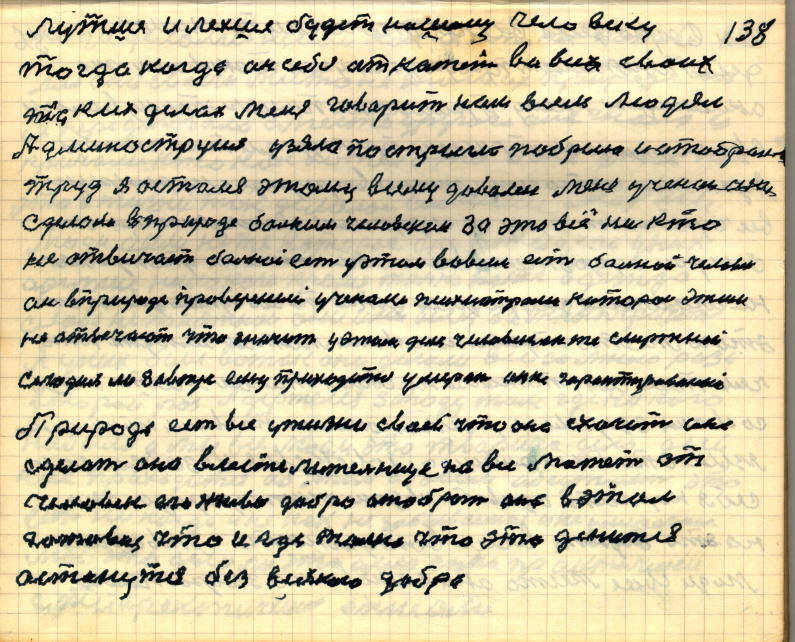 лутшия и лехшя будет нашому человеку 138
тогда когда он себя откажит во всих своих
таких делах меня говарит нам всем людям
Администрция узяла постригло побрила и отобрали
труд я остался этому всему доволен меня учении они
сделали в природе болним человеком За это всё ни кто
не отвичаит болной ест уэтом вовсем ест болной человек
он в природе проверений учеными психиатрами которои этим
не отвечают что значит уэтом деле человек он же смертний
сигодня ли завтре ему приходится умират он не гарантированой
Природе ест всё у жизни своей что она схочит она
сделает она властелителница на все может эт
человек его живо добро отобрат она в этом
что и где только что это денится
останутся без всякого добра